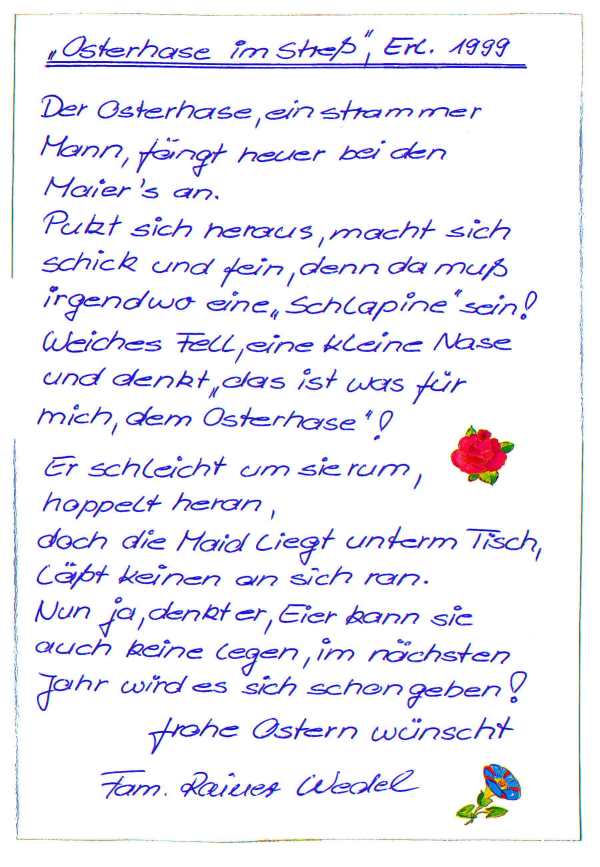 „Osterhase im Streß“, Erl. 1999
Der Osterhase, ein strammer
Mann, fängt heuer bei den
Maier's an.
Putzt sich heraus, macht sich
schick und fein, denn da muß
irgendwo eine „Schlapine“ sein!
Weiches Fell, eine kleine Nase
und denkt „das ist was für
mich, dem Osterhase“!
Er schleicht um sie rum,
hoppelt heran,
doch die Maid liegt unterm Tisch,
läßt keinen an sich ran.
Nun ja, denkt er, Eier kann sie
auch keine legen, im nächsten
Jahr wird es sich schon geben!
frohe Ostern wünscht
Fam. Rainer Wedel